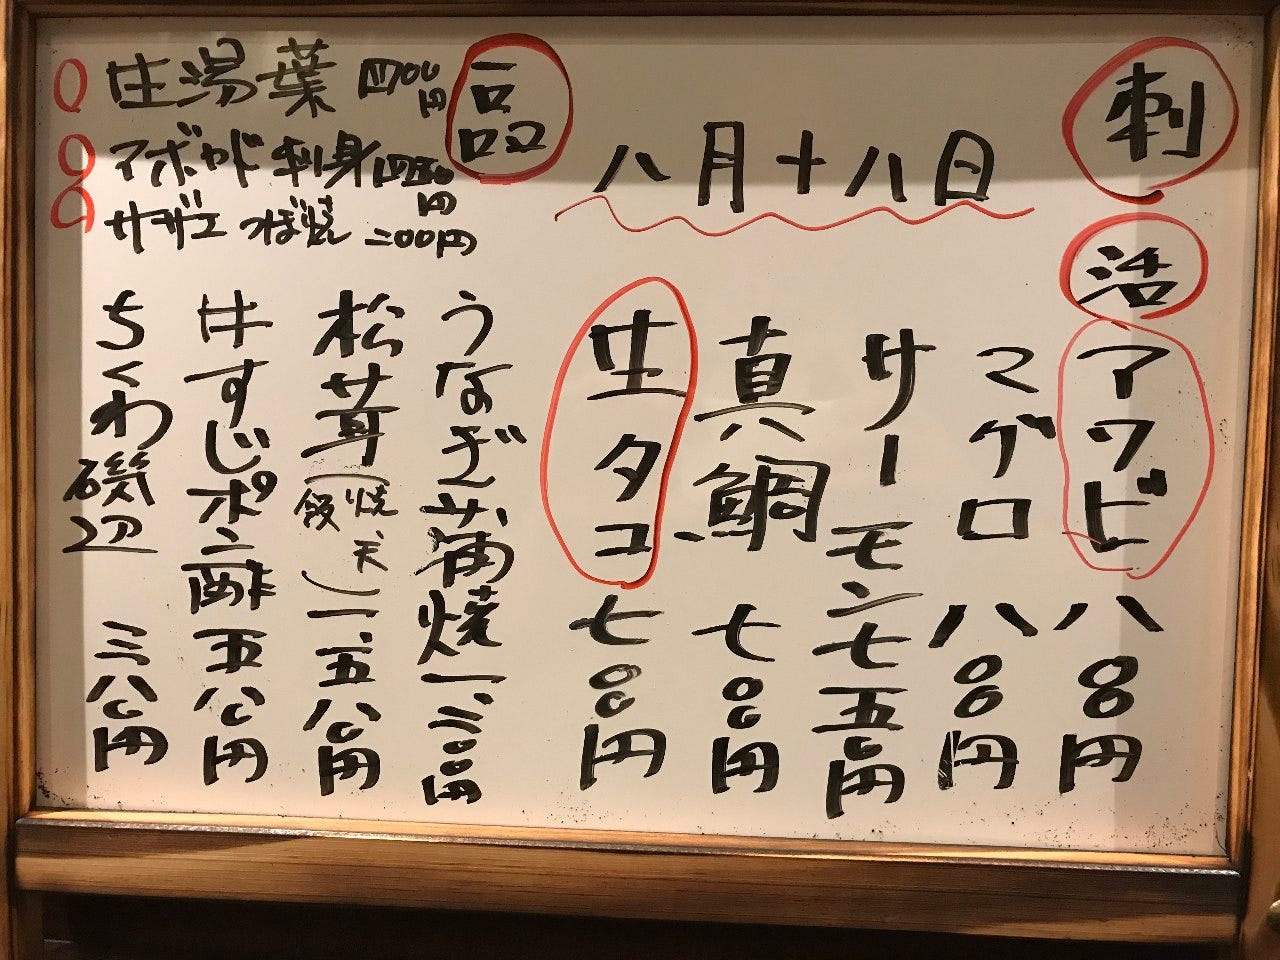 刺
八月十八日
活アワビ 八〇〇円
マグロ 八〇〇円
サーモン 七五〇円
真鯛 七〇〇円
生タコ 七〇〇円
一品
生湯葉 四〇〇円
アボカド刺身 四五〇円
サザエ つぼ焼 二〇〇円
うなぎ蒲焼 一、三〇〇円
松茸(焼 天 飯) 一、五八〇円
牛すじポン酢 五八〇円
ちくわ磯辺 三八〇円